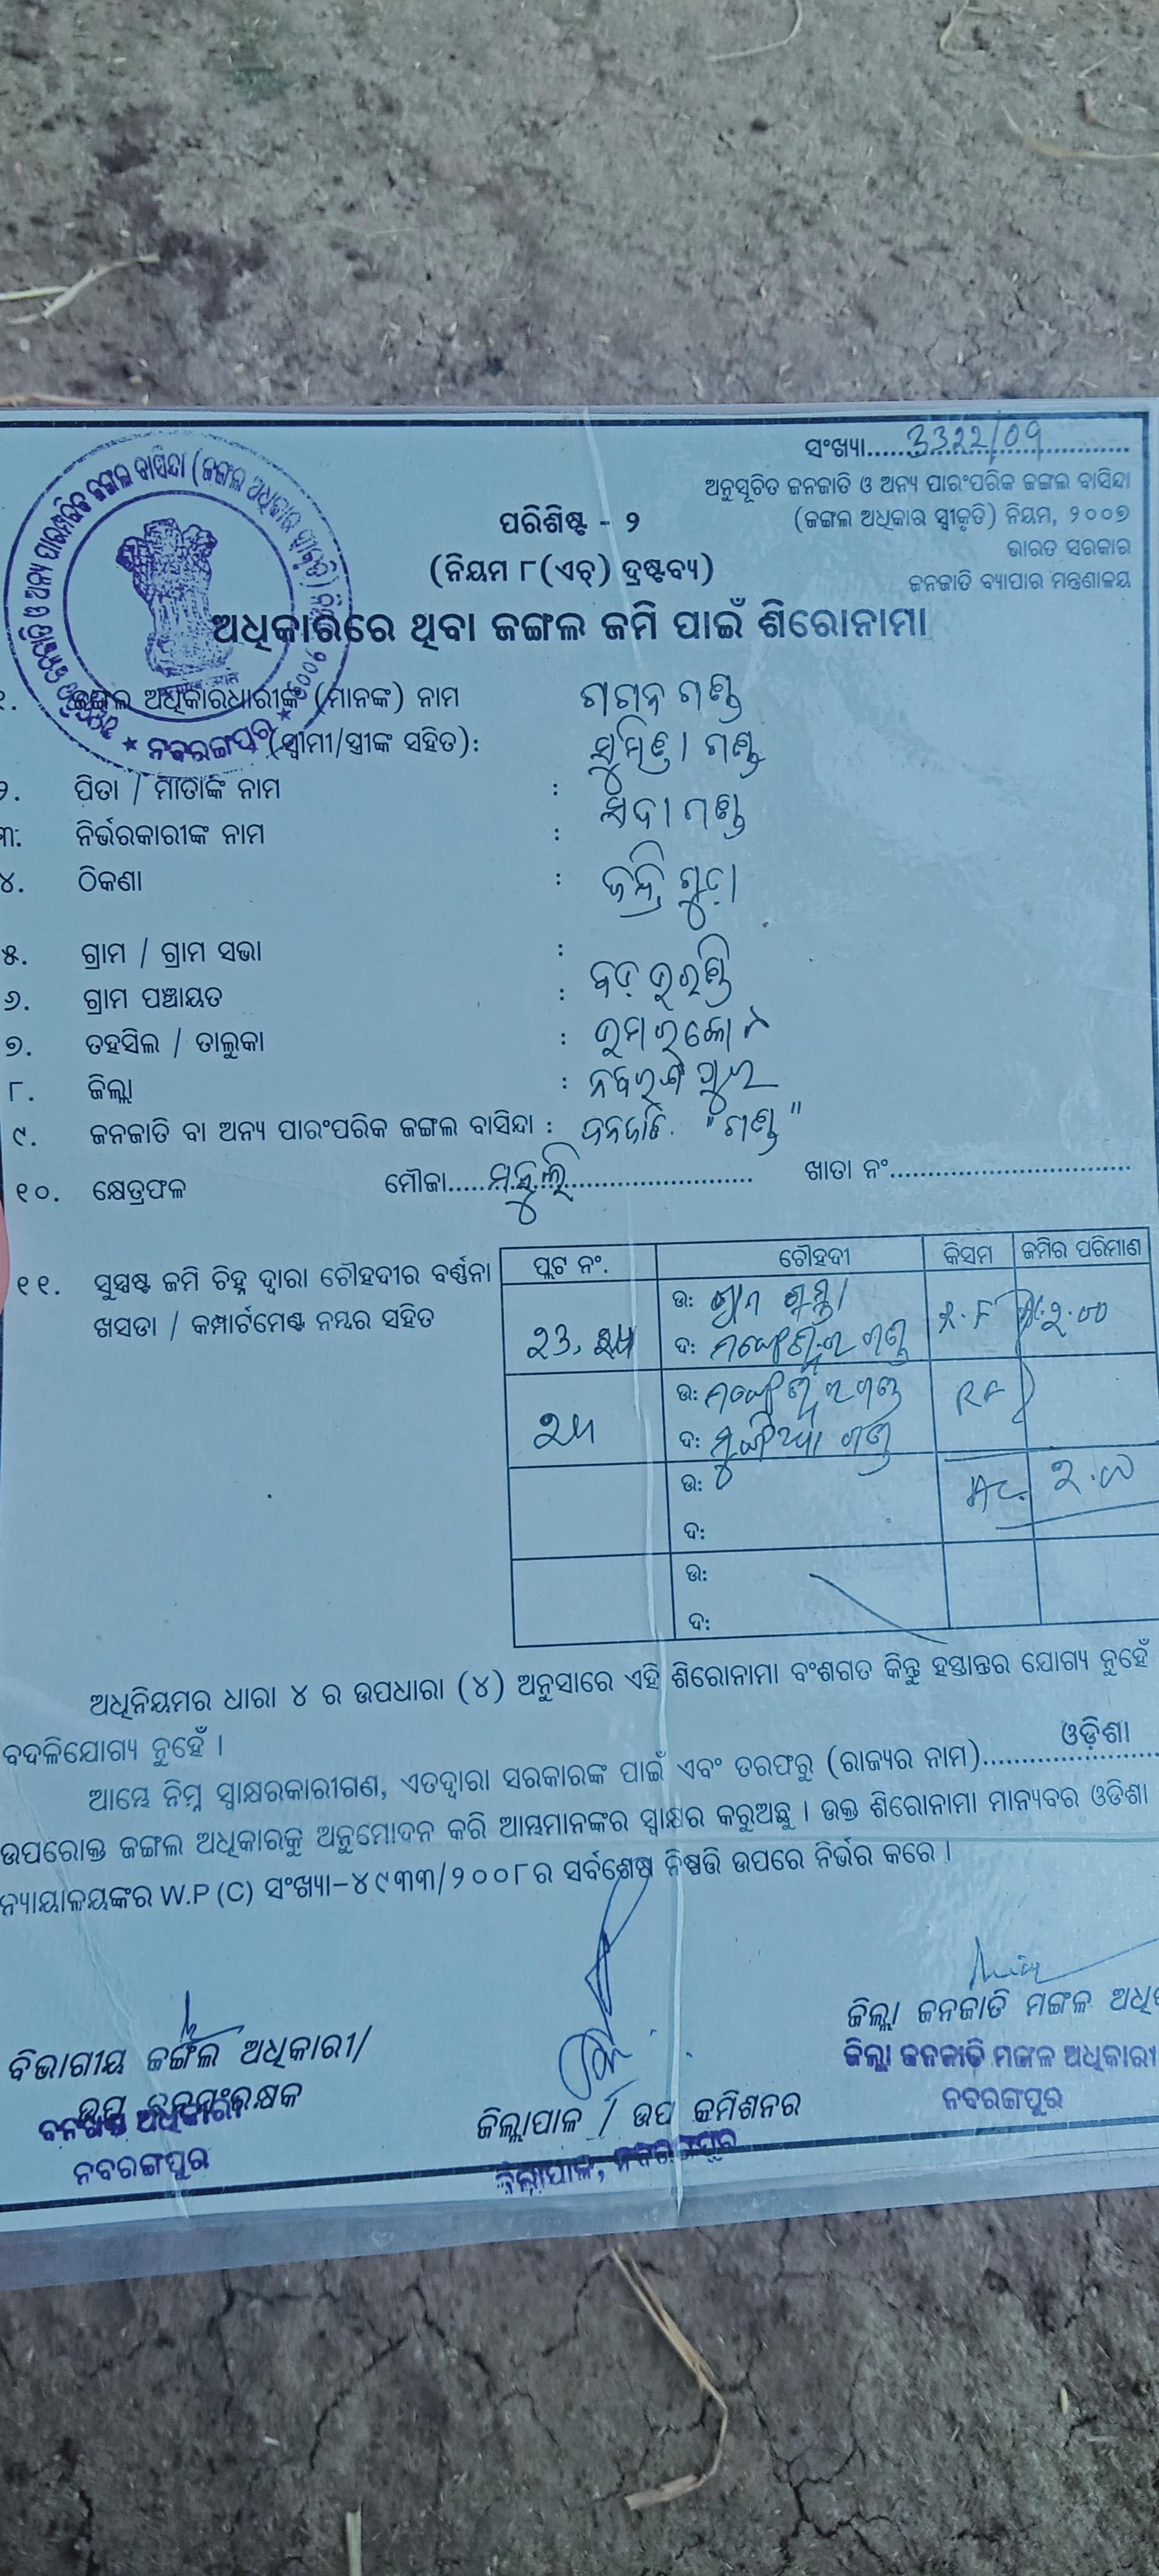 ସଂଖ୍ୟା......3322/09......
ଅନୁସୂଚିତ ଜନଜାତି ଓ ଅନ୍ୟ ପାରଂପରିକ ଜଙ୍ଗଲ ବାସିନ୍ଦା
(ଜଙ୍ଗଲ ଅଧିକାର ସ୍ୱୀକୃତି) ନିୟମ, ୨୦୦୭
ଭାରତ ସରକାର
ଜନଜାତି ବ୍ୟାପାର ମନ୍ତ୍ରଣାଳୟ
ପରିଶିଷ୍ଟ - ୨
(ନିୟମ ୮(ଏଚ୍) ଦ୍ରଷ୍ଟବ୍ୟ)
ଅଧିକାରରେ ଥିବା ଜଙ୍ଗଲ ଜମି ପାଇଁ ଶିରୋନାମା
ନବରଙ୍ଗପୁର
୧. ଜଙ୍ଗଲ ଅଧିକାରଧାରୀଙ୍କ (ମାନଙ୍କ) ନାମ ଗଗନ ଗଣ୍ଡ
(ସ୍ୱାମୀ/ସ୍ତ୍ରୀଙ୍କ ସହିତ): ସୁମିତ୍ରା ଗଣ୍ଡ
୨. ପିତା / ମାତାଙ୍କ ନାମ : ସଦା ଗଣ୍ଡ
୩. ନିର୍ଭରକାରୀଙ୍କ ନାମ :
୪. ଠିକଣା :
୫. ଗ୍ରାମ / ଗ୍ରାମ ସଭା :
୬. ଗ୍ରାମ ପଞ୍ଚାୟତ :
୭. ତହସିଲ / ତାଲୁକା :
୮. ଜିଲ୍ଲା : ନବରଙ୍ଗପୁର
୯. ଜନଜାତି ବା ଅନ୍ୟ ପାରଂପରିକ ଜଙ୍ଗଲ ବାସିନ୍ଦା : ଜନଜାତି. "ଗଣ୍ଡ"
୧୦. କ୍ଷେତ୍ରଫଳ ମୌଜା............ ଖାତା ନଂ............
୧୧. ସୁସ୍ପଷ୍ଟ ଜମି ଚିହ୍ନ ଦ୍ୱାରା ଚୌହଦୀର ବର୍ଣ୍ଣନା
ଖସଡା / କମ୍ପାର୍ଟମେଣ୍ଟ ନମ୍ବର ସହିତ
ପ୍ଲଟ ନଂ. ଚୌହଦୀ କିସମ ଜମିର ପରିମାଣ
ଉ: R.F ୨.୦୦
ଦ: ଗଣ୍ଡ
ଉ: RF
ଦ: ଗଣ୍ଡ
ଉ: Ac. ୨.୦୦
ଦ:
ଉ:
ଦ:
ଅଧିନିୟମର ଧାରା ୪ ର ଉପଧାରା (୪) ଅନୁସାରେ ଏହି ଶିରୋନାମା ବଂଶଗତ କିନ୍ତୁ ହସ୍ତାନ୍ତର ଯୋଗ୍ୟ ନୁହେଁ
ବଦଳିଯୋଗ୍ୟ ନୁହେଁ ।
ଓଡ଼ିଶା
ଆମ୍ଭେ ନିମ୍ନ ସ୍ୱାକ୍ଷରକାରୀଗଣ, ଏତଦ୍ୱାରା ସରକାରଙ୍କ ପାଇଁ ଏବଂ ତରଫରୁ (ରାଜ୍ୟର ନାମ)............
ଉପରୋକ୍ତ ଜଙ୍ଗଲ ଅଧିକାରକୁ ଅନୁମୋଦନ କରି ଆମ୍ଭମାନଙ୍କର ସ୍ୱାକ୍ଷର କରୁଅଛୁ । ଉକ୍ତ ଶିରୋନାମା ମାନ୍ୟବର ଓଡିଶା
ନ୍ୟାୟାଳୟଙ୍କର W.P (C) ସଂଖ୍ୟା-୪୯୩୩/୨୦୦୮ର ସର୍ବଶେଷ ନିଷ୍ପତ୍ତି ଉପରେ ନିର୍ଭର କରେ ।
ବିଭାଗୀୟ ଜଙ୍ଗଲ ଅଧିକାରୀ/
ଉପ ବନସଂରକ୍ଷକ
ବନଖଣ୍ଡ ଅଧିକାରୀ
ନବରଙ୍ଗପୁର
ଜିଲ୍ଲାପାଳ / ଉପ କମିଶନର
ଜିଲ୍ଲାପାଳ, ନବରଙ୍ଗପୁର
ଜିଲ୍ଲା ଜନଜାତି ମଙ୍ଗଳ
ଜିଲ୍ଲା ଜନଜାତି ମଙ୍ଗଳ ଅଧିକାରୀ
ନବରଙ୍ଗପୁର